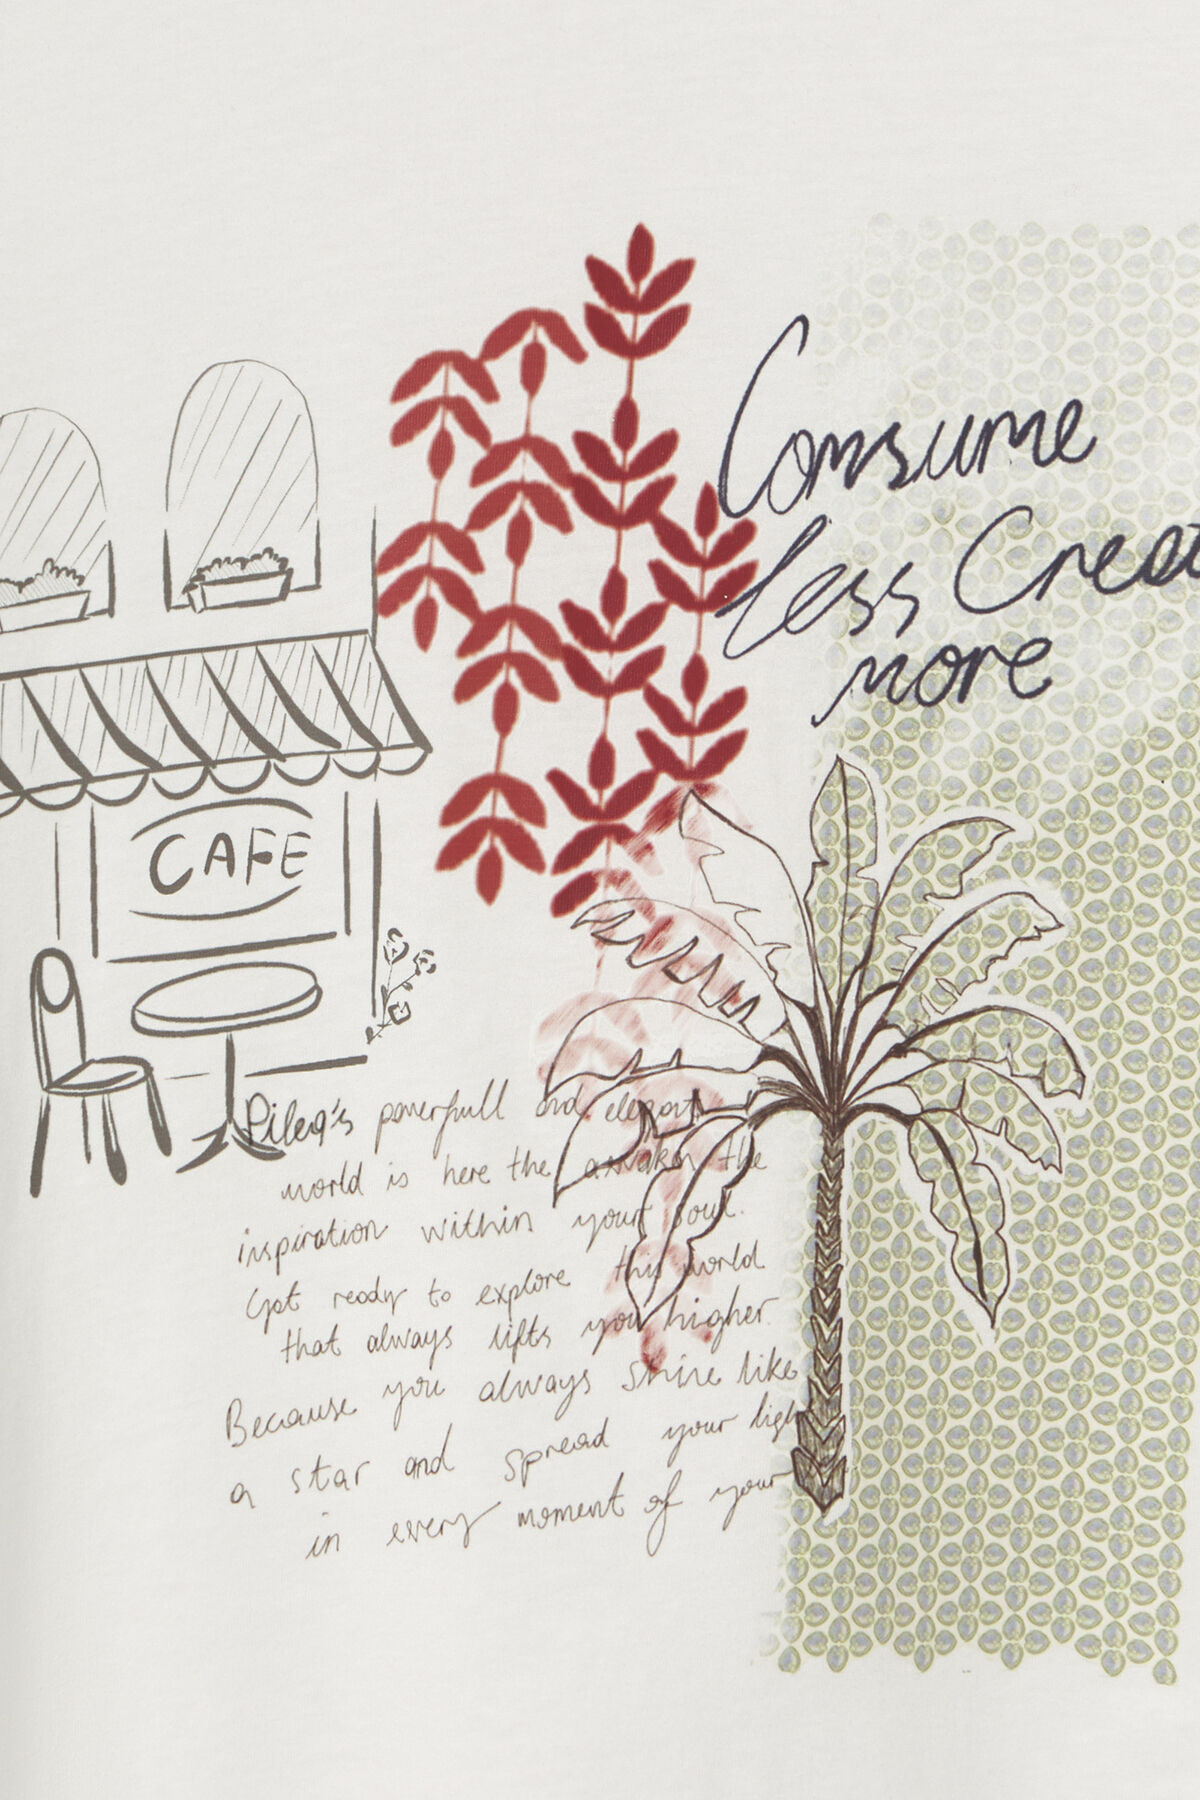 Consume
less Crea
more
CAFE
Pilea's powerfull and elegant
world is here the awaken the
inspiration within your soul.
Get ready to explore this world
that always lifts you higher.
Because you always shine like
a star and spread your ligh
in every moment of your